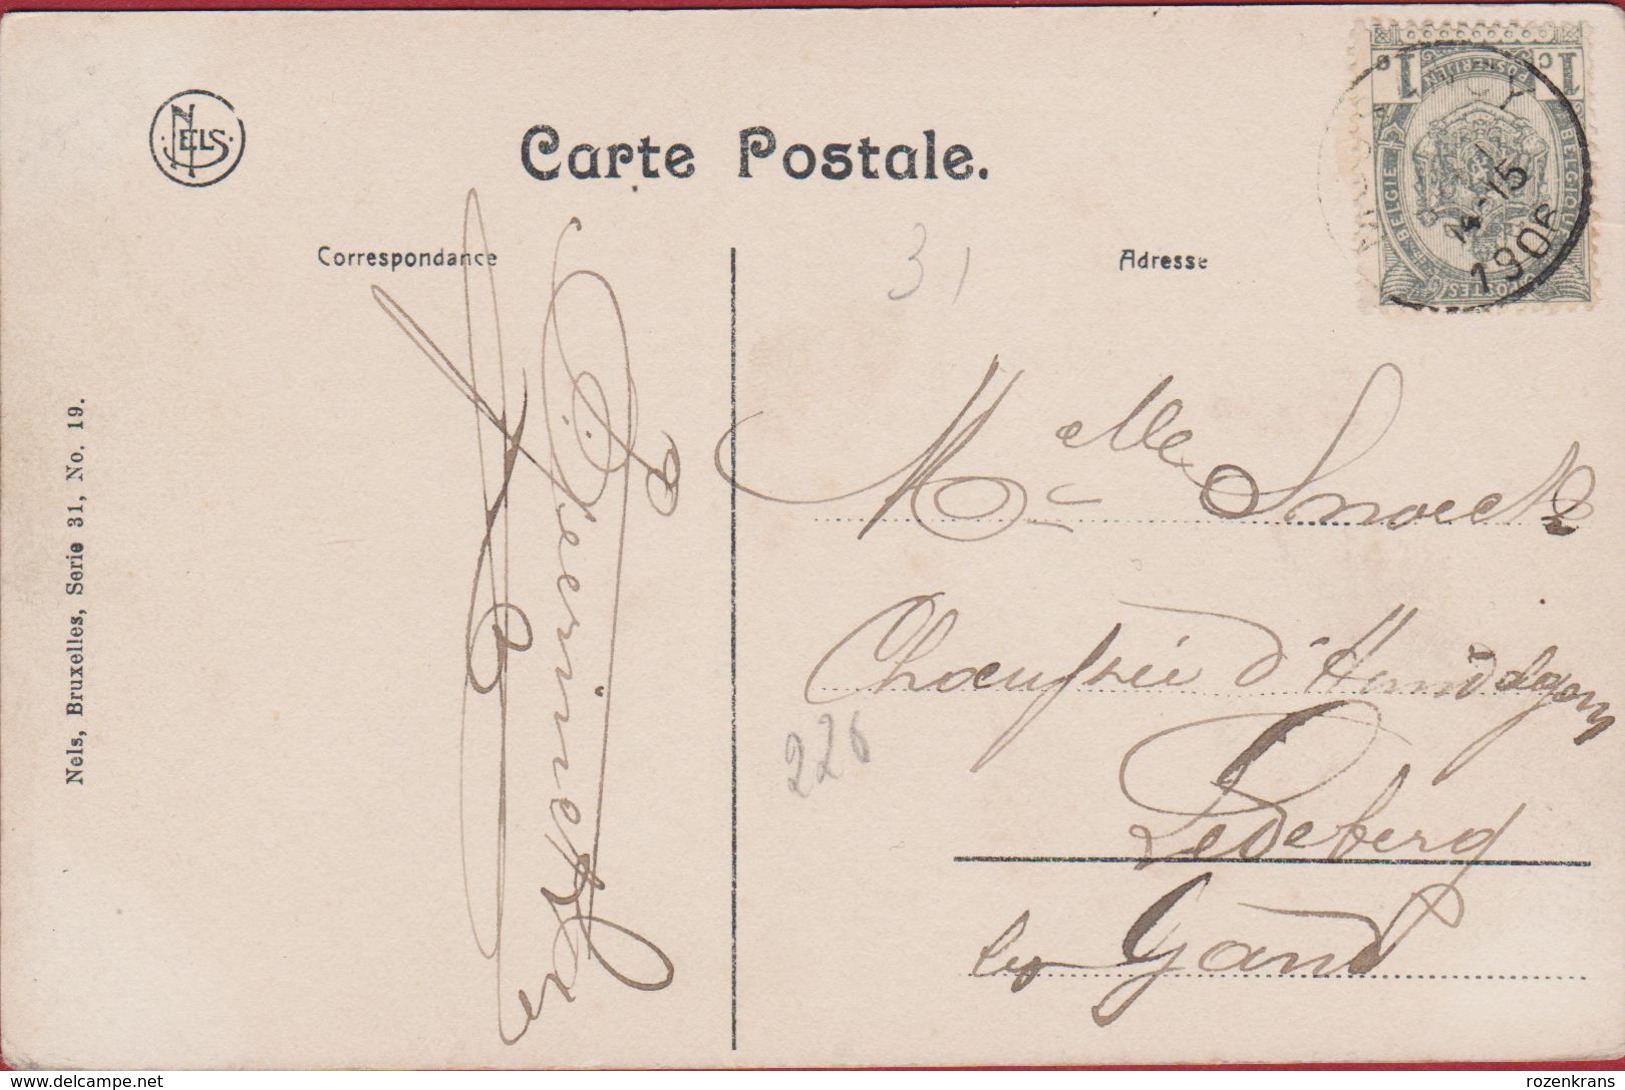 NELS
Carte Postale.
Correspondance
Adresse
31
1 C 1 C
POSTERIJEN
BELGIE BELGIQUE
POSTES
14-15
1906
Nels, Bruxelles, Serie 31, No. 19.
Melle Snoeck
Chaussée d'
Ledeberg
lez Gand
226
© delcampe.net
rozenkrans